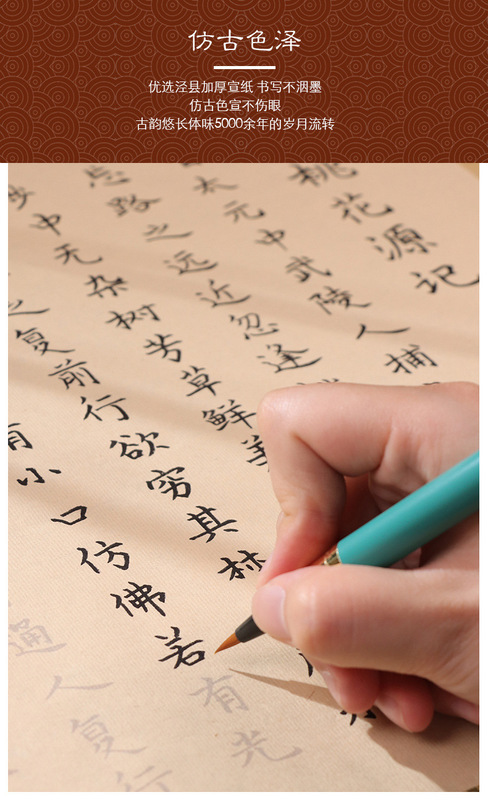 仿古色泽
优选泾县加厚宣纸 书写不洇墨
仿古色宣不伤眼
古韵悠长体味5000余年的岁月流转
桃花源记
太元中武陵人捕
忘路之远近忽逢
步中无杂树芳草鲜美
之复前行欲穷其林
有小口仿佛若有光
通人复行